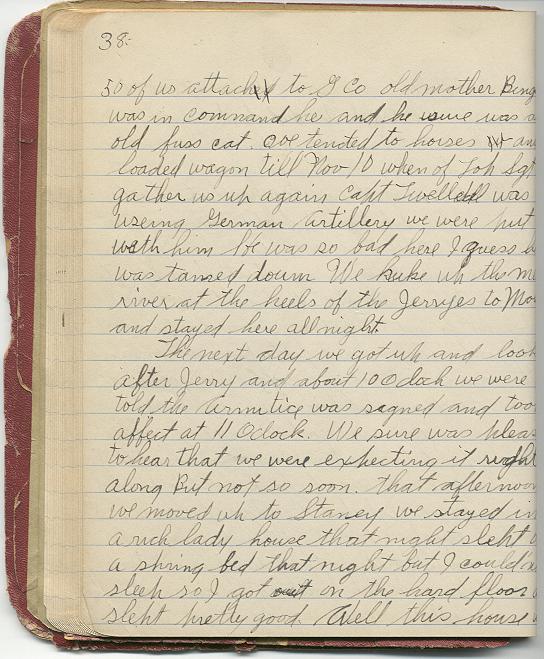 38-
50 of us attached to G Co old mother Bing
was in command he and he sure was a
old fuss cat. we tended to horses and
loaded wagon till Nov 10 when of Toh Sgt
gather us up again Capt Twelledll was
useing German Artillery we were put
with him He was so bad here I guess
was tamed down We kuke up the
river at the heels of the Jerryes to
and stayed here all night
The next day we got up and look
after Jerry and about 10 Oclock we were
told the armitice was signed and too
affect at 11 Oclock. We sure was pleas
to hear that we were expecting it right
along But not so soon. that afternoon
we moved up to Staney we stayed in
a rich lady house that night slept
a spring bed that night but I could
sleep so I got out on the hard floor
slept pretty good. Well this house